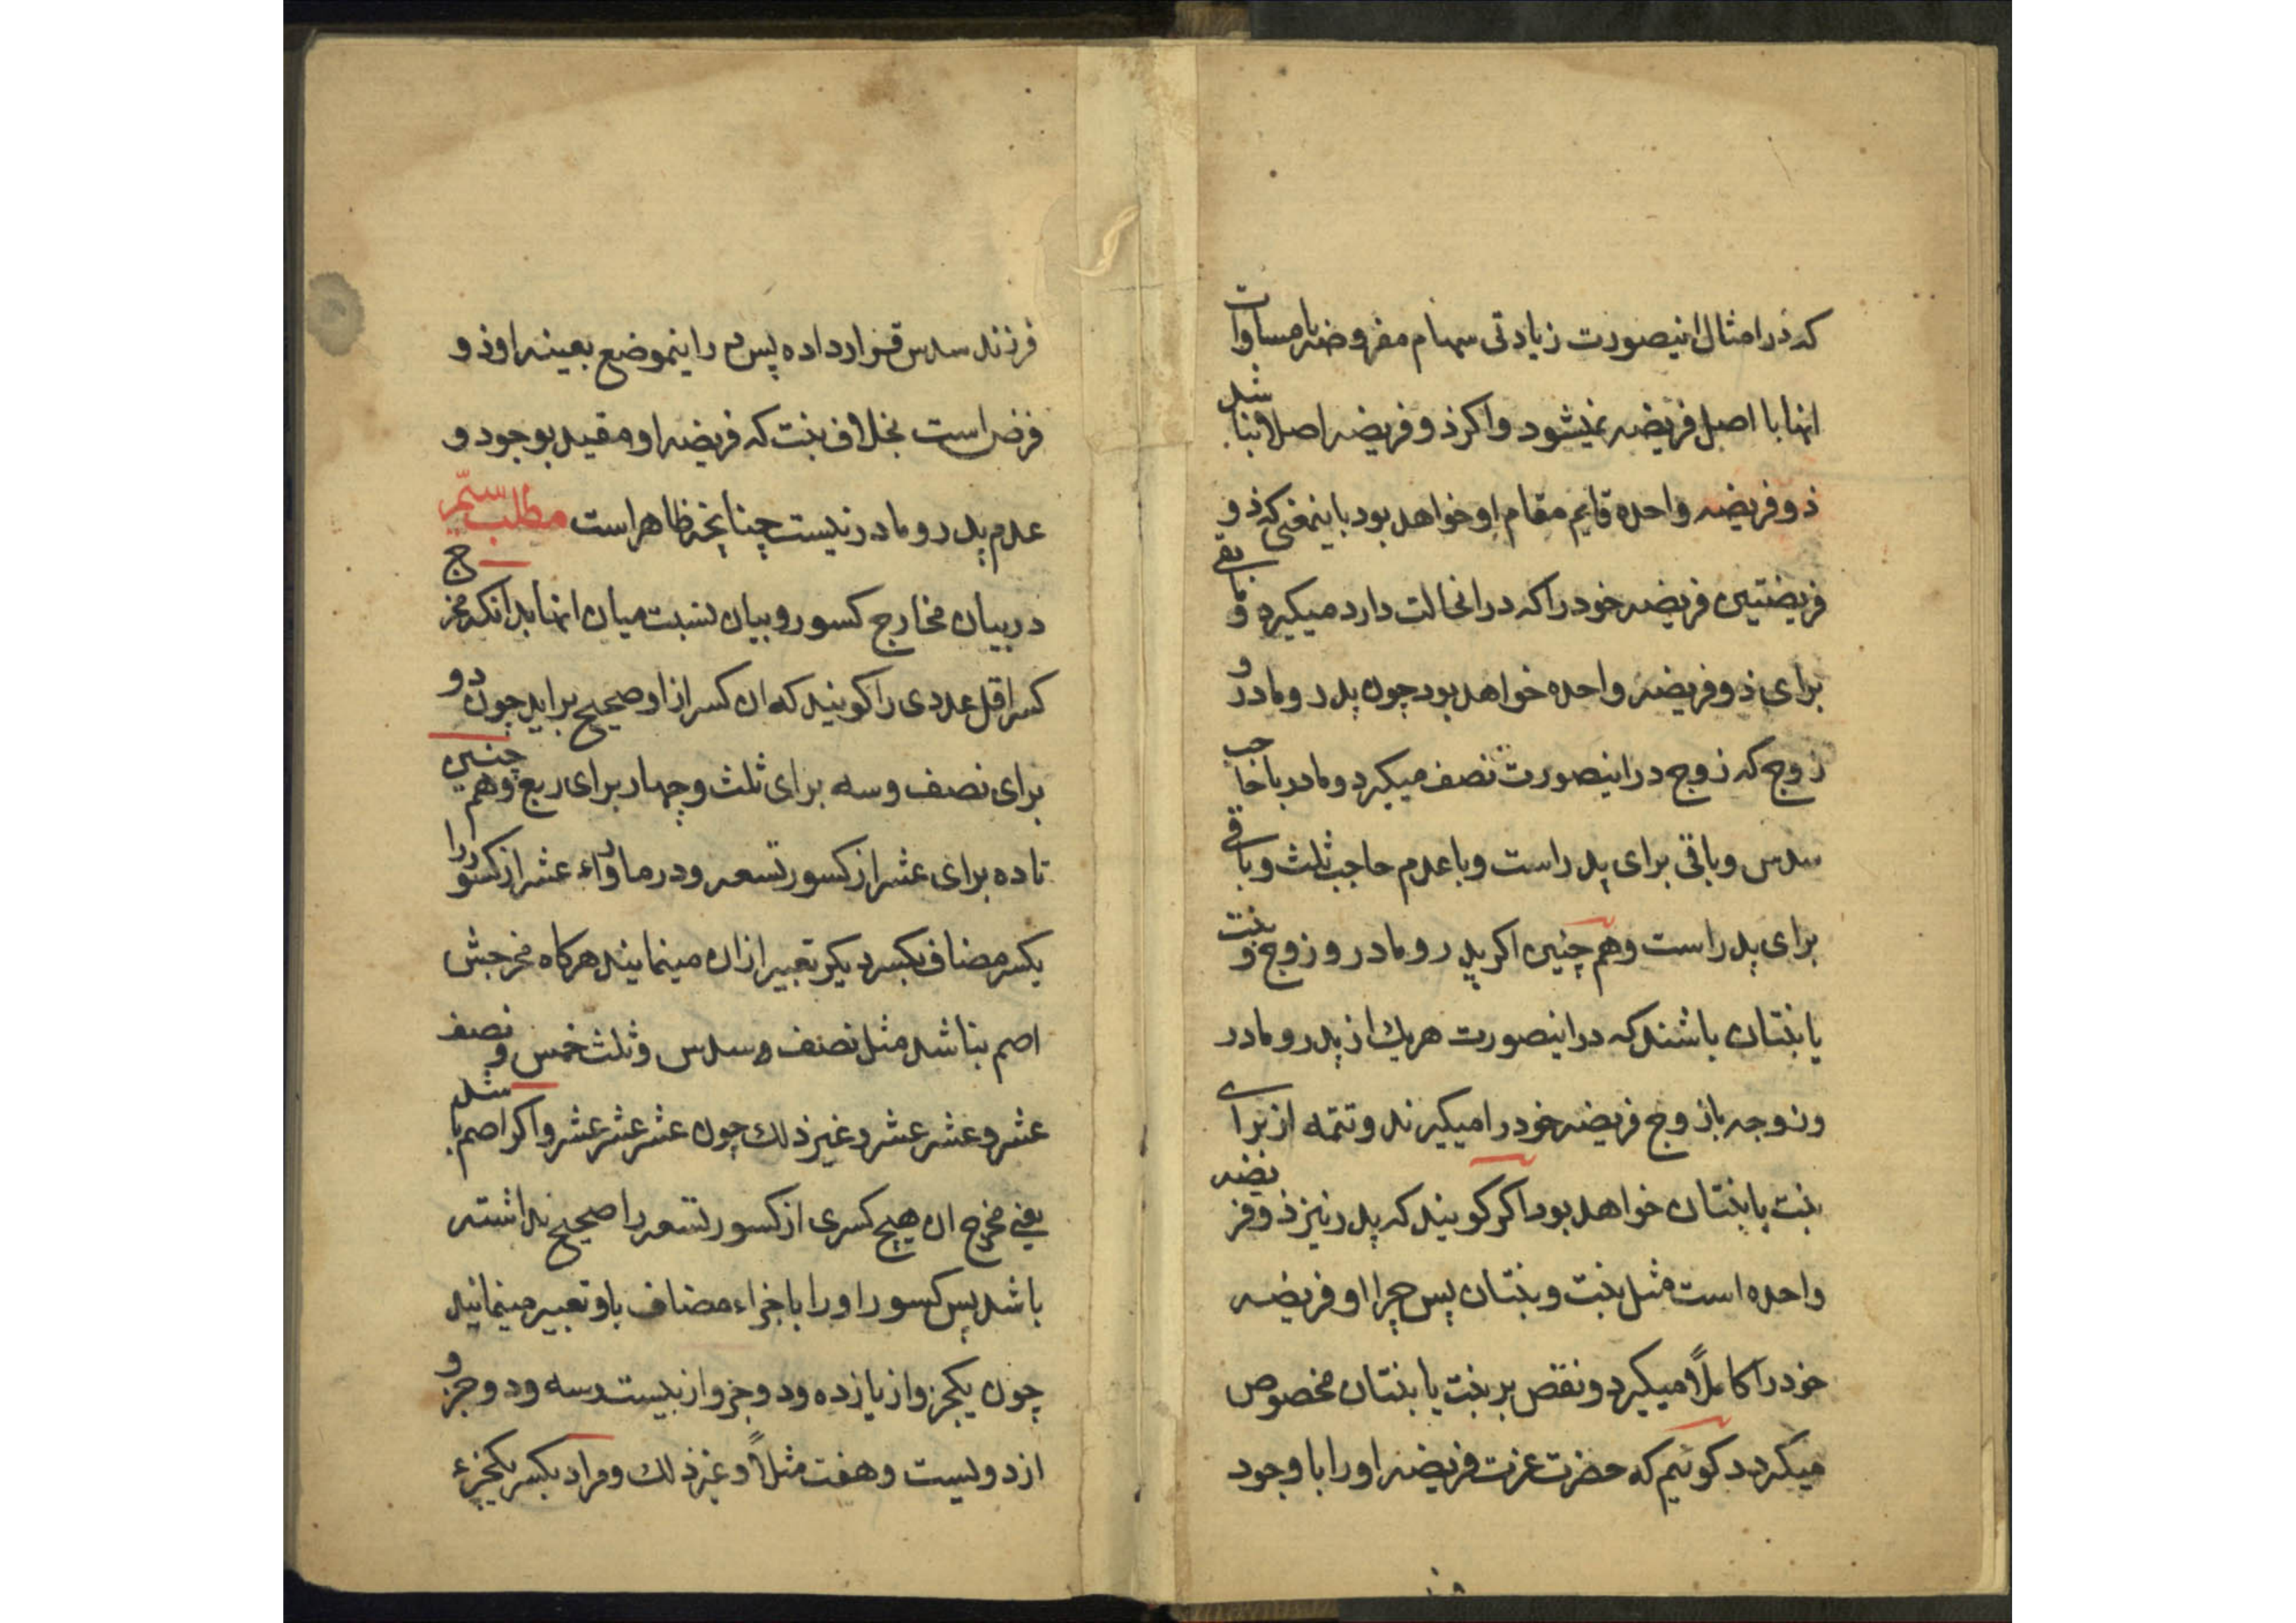 که در امثال اینصورت زیادتی سهام مفروضه یا مساوات
انها با اصل فریضه نمیشود و اکر ذو فریضه اصلا نباشد
ذو فریضه واحده قایم مقام او خواهد بود باینمعنی که ذو
فریضتین فریضه خود را که در انحالت دارد میکیرد و مابقی
برای ذو فریضه واحده خواهد بود چون پدر و مادر و
زوج که زوج در اینصورت نصف میکیرد و مادر با حاجب
سدس و باقی برای پدر است و با عدم حاجب ثلث و باقی
برای پدر است و هم چنین اکر پدر و مادر و زوج و بنت
یا بنتان باشند که در اینصورت هریک از پدر و مادر
و زوجه یا زوج فریضه خود را میکیرند و تتمه از برای
بنت یا بنتان خواهد بود اکر کویند که پدر نیز ذو فریضه
واحده است مثل بنت و بنتان پس چرا او فریضه
خود را کاملاً میکیرد و نقص بر بنت یا بنتان مخصوص
میکردد کوئیم که حضرت عزت فریضه او را با وجود
فرزند سدس قرار داده پس در اینموضع بعینه او ذو
فرض است بخلاف بنت که فریضه او مقید بوجود و
عدم پدر و مادر نیست چنانچه ظاهر است مطلب سیّم
در بیان مخارج کسور و بیان نسبت میان انها بدانکه مخرج
کسر اقل عددی را کویند که ان کسر از او صحیح براید چون دو
برای نصف و سه برای ثلث و چهار برای ربع و هم چنین
تا ده برای عشر از کسور تسعه و در ماوراء عشر از کسور را
بکسر مضاف بکسر دیکر تعبیر از ان مینمایند هرکاه مخرجش
اصم نباشد مثل نصف و سدس و ثلث خمس و نصف
عشر و عشر عشر و غیر ذلک چون عشر عشر عشر و اکر اصم باشد
یعنی مخرج ان هیچ کسری از کسور تسعه را صحیح نداشته
باشد پس کسور او را با جزاء مضاف باو تعبیر مینمایند
چون یکجزو از یازده و دو جزو از بیست و سه و دو جزو
از دویست و هفت مثلاً و غیر ذلک و مراد بکسر یکجزء